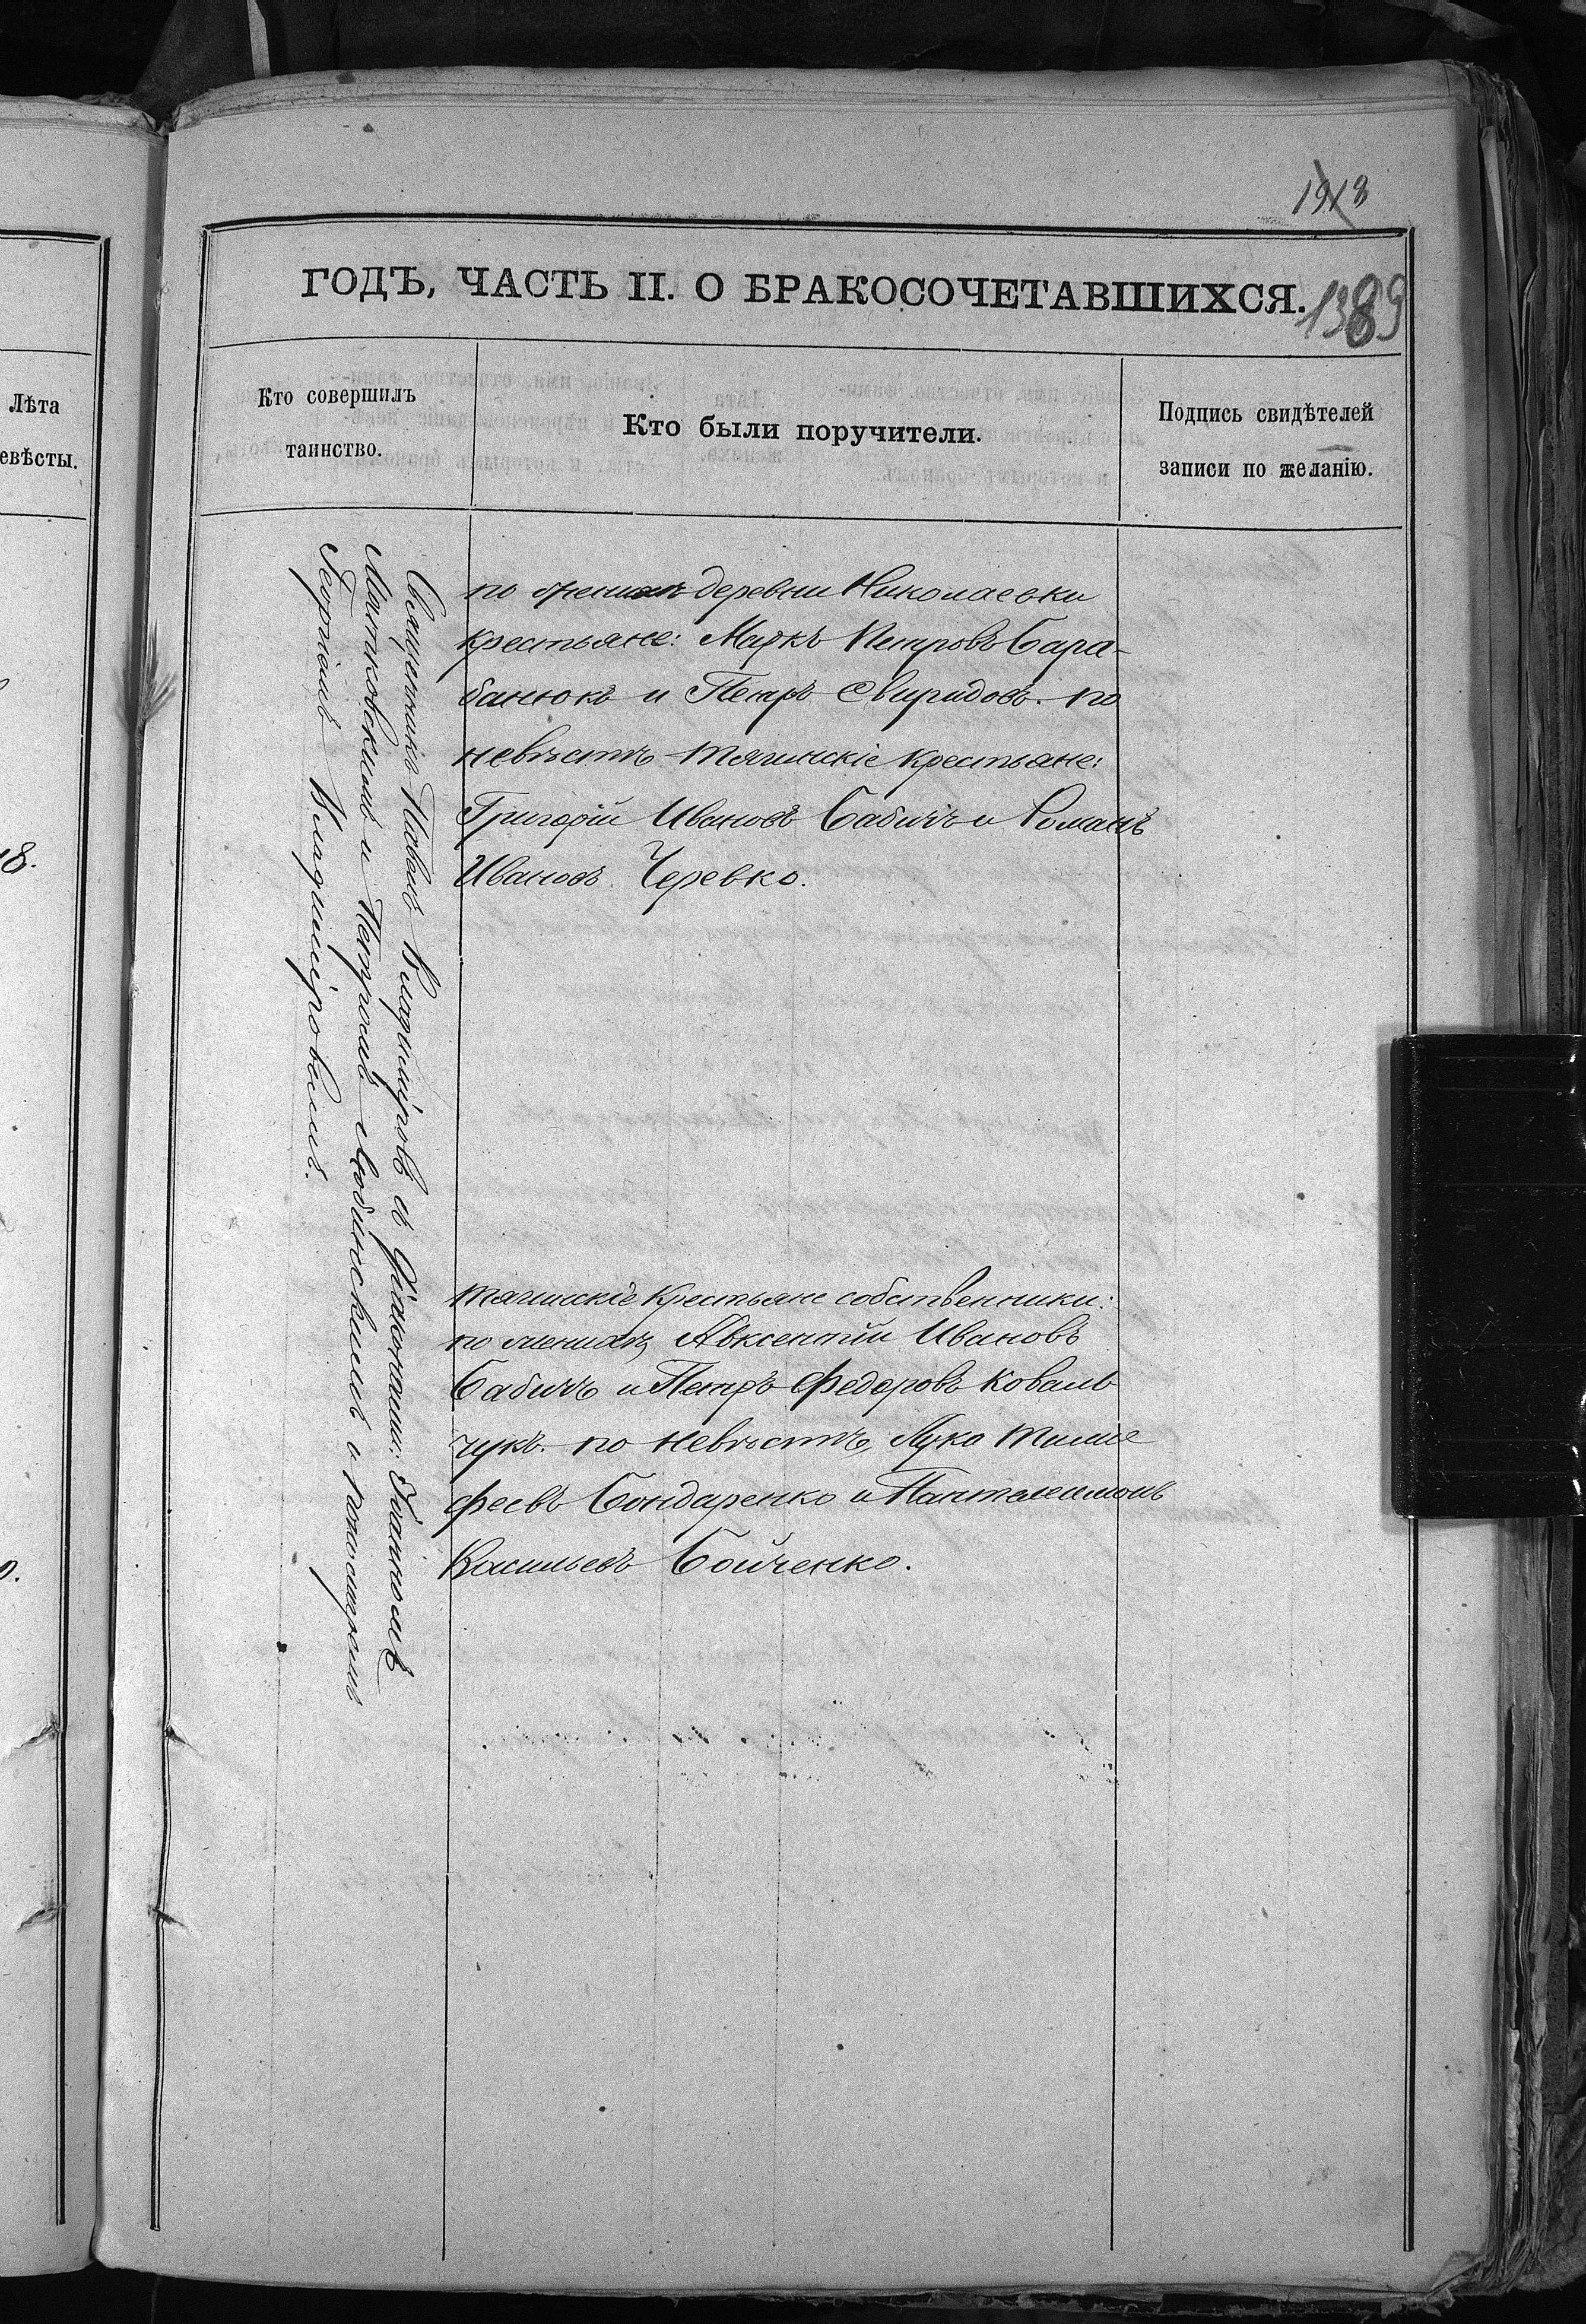 1918
ГОДЪ, ЧАСТЬ II. О БРАКОСОЧЕТАВШИХСЯ.
1389
Лѣта
евѣсты.
18.
0.
Кто совершилъ
таинство.
Кто были поручители.
Подпись свидѣтелей
записи по желанію.
Священникъ Павелъ Владиміровъ съ діаконами: Іоанномъ
и Петромъ и
Георгіемъ Владиміровымъ.
по женихѣ деревни Николаевки
крестьяне: Маркъ Петровъ Бара-
банюкъ и Петръ Свиридовъ. по
невѣстѣ Тягинскіе крестьяне:
Григорій Ивановъ Бабичъ и Романъ
Ивановъ Черевко.
Тягинскіе крестьяне собственники:
по женихѣ, Авксентій Ивановъ
Бабичъ и Петръ Федоровъ Коваль
чукъ. по невѣстѣ, Лука Тимо
феевъ Бондаренко и Пантелеимонъ
Васильевъ Бойченко.